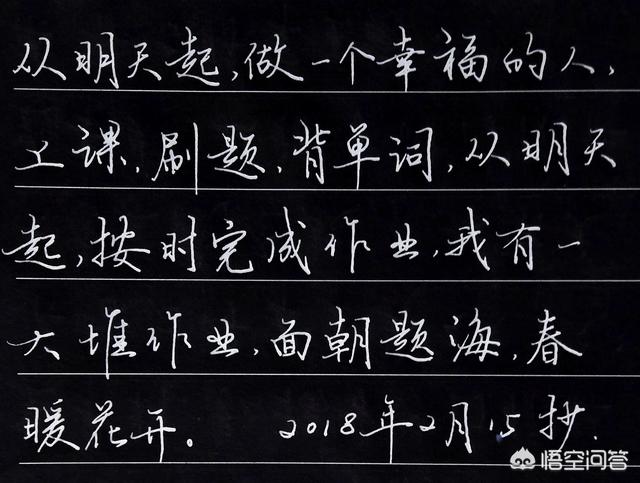 从明天起,做一个幸福的人,
上课,刷题,背单词,从明天
起,按时完成作业,我有一
大堆作业,面朝题海,春
暖花开。 2018年2月15抄.
悟空问答